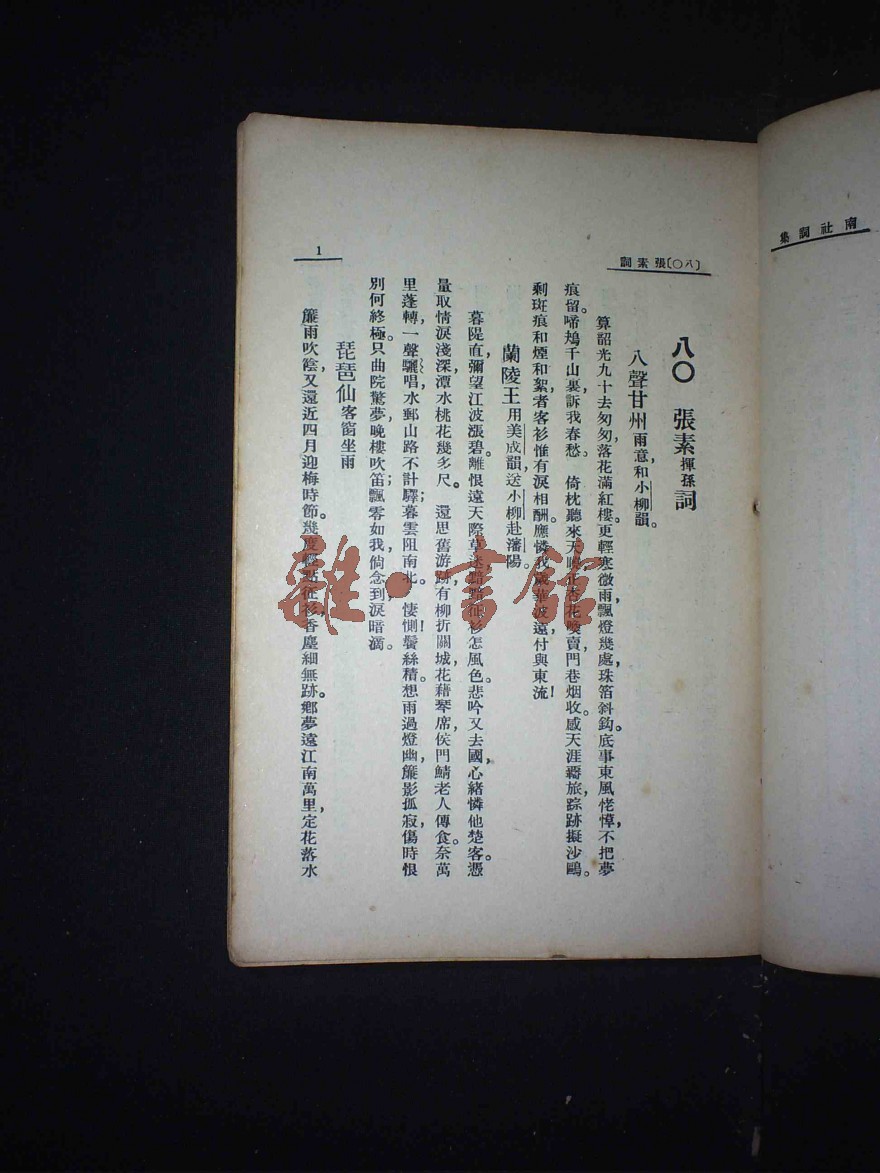 南社詞集
〔八〇〕張素詞
1
八〇　張素揮孫詞
八聲甘州雨意，和小柳韻。
算韶光九十去匆匆，落花滿紅樓。更輕寒微雨，飄燈幾處，珠箔斜鈎。底事東風憔悴，不把夢
痕留。啼鴂千山裏，訴我春愁。　倚枕聽來天曉，正杏花喚賣，門巷烟收。感天涯羈旅，踪跡擬沙鷗。
剩斑痕和煙和絮，者客衫惟有淚相酬。應憐我歲華波遠，付與東流！
蘭陵王用美成韻，送小柳赴瀋陽。
暮隄直，彌望江波漲碧。離恨遠，天際草迷，黯黯征衫怎風色。悲吟又去國，心緒憐他楚客。憑
量取情淚淺深，潭水桃花幾多尺。　還思舊游跡，有柳折關城，花藉琴席，侯門鯖老人傳食。奈萬
里蓬轉，一聲驪唱，水郵山路不計驛；暮雲阻南北。　悽惻！鬢絲積。想雨過燈幽，簾影孤寂，傷時恨
別何終極。只曲院驚夢，晚樓吹笛；飄零如我，倘念到，淚暗滴。
琵琶仙客窗坐雨
簾雨吹陰，又還近四月迎梅時節。幾度輕點征衫，香塵細無跡。鄉夢遠江南萬里，定花落水